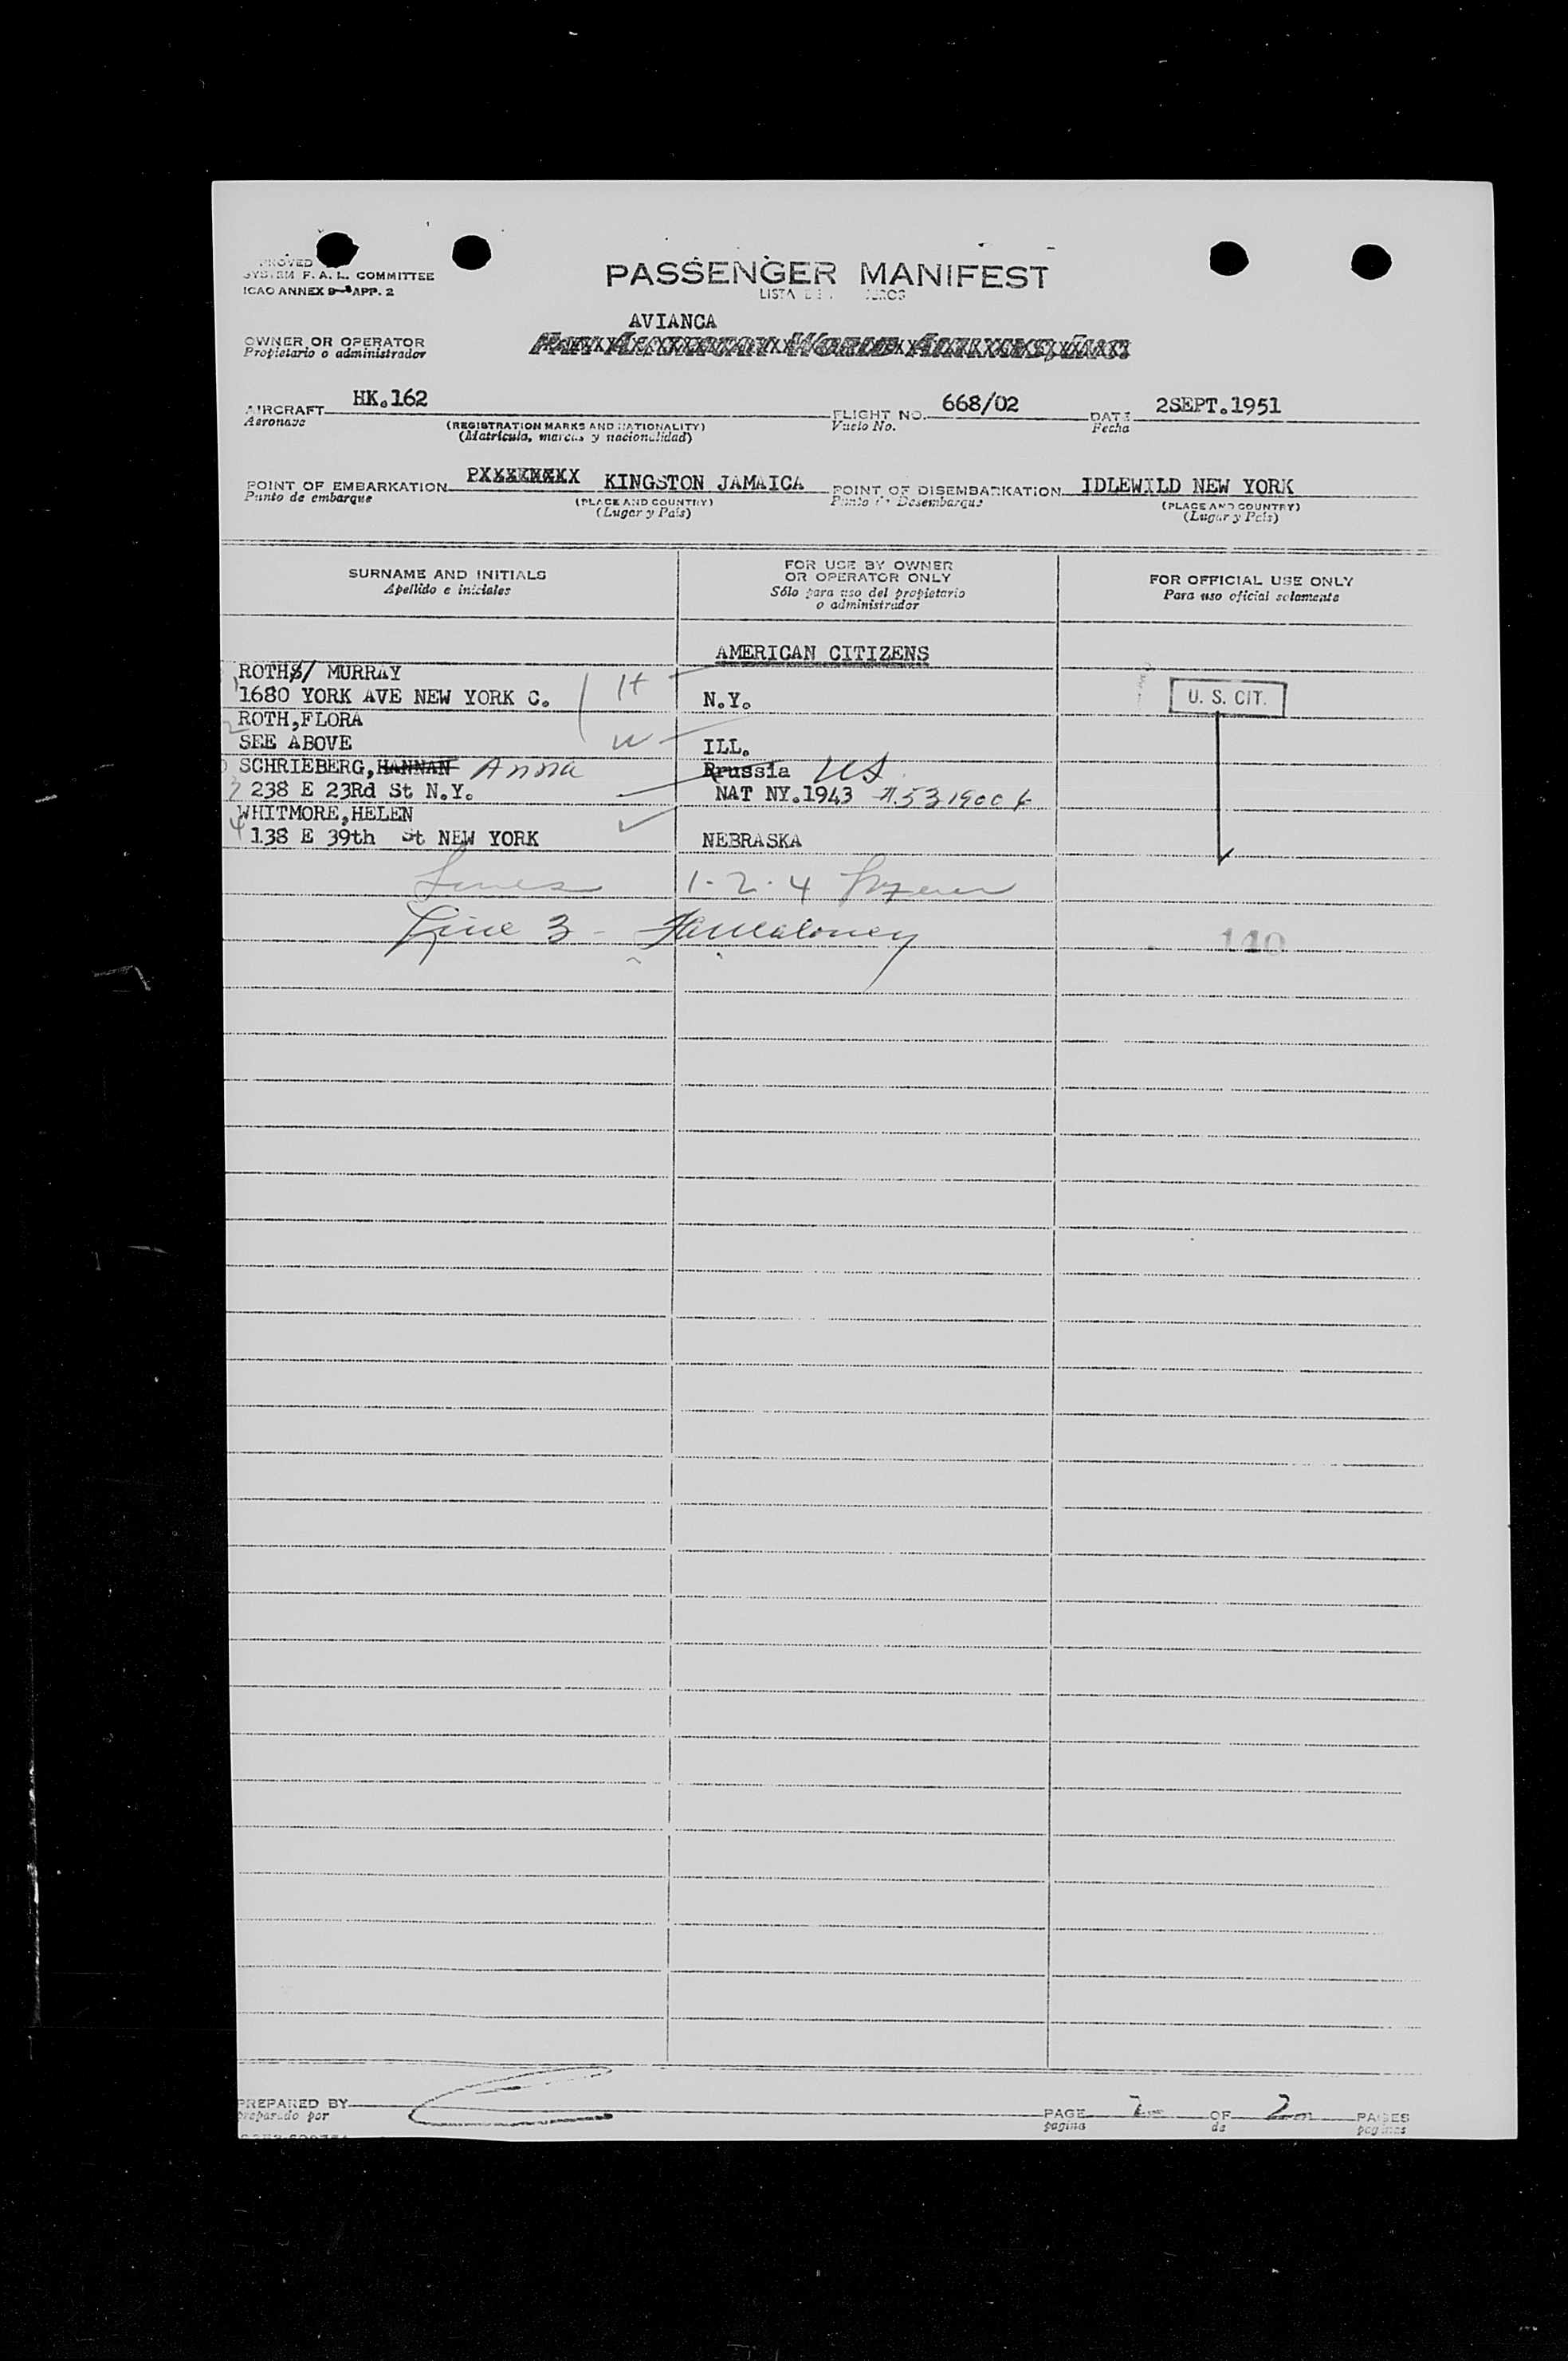 SYSTEM F. A. L. COMMITTEE
ICAO ANNEX 9 APP. 2
PASSENGER MANIFEST
AVIANCA
OWNER OR OPERATOR
Propietario o administrador
AIRCRAFT HK.162 FLIGHT NO. 668/02 DATE 2SEPT.1951
Aeronave (REGISTRATION MARKS AND NATIONALITY) Vuelo No. Fecha
(Matricula, marcas y nacionalidad)
POINT OF EMBARKATION KINGSTON JAMAICA POINT OF DISEMBARKATION IDLEWILD NEW YORK
Punto de embarque (PLACE AND COUNTRY) Punto de Desembarque (PLACE AND COUNTRY)
(Lugar y País) (Lugar y País)
SURNAME AND INITIALS FOR USE BY OWNER OR OPERATOR ONLY FOR OFFICIAL USE ONLY
Apellido e iniciales Sólo para uso del propietario o administrador Para uso oficial solamente
AMERICAN CITIZENS
ROTH/ MURRAY
1 1680 YORK AVE NEW YORK C. H N.Y. U. S. CIT.
2 ROTH,FLORA
SEE ABOVE W ILL.
SCHRIEBERG,HANNAN Anna Rrussia US
3 238 E 23Rd St N.Y. NAT NY.1943 #.5319006
WHITMORE,HELEN
4 138 E 39th St NEW YORK NEBRASKA
Lines 1-2-4
Line 3 -
140
PREPARED BY PAGE OF 2 PAGES
preparado por pagina de paginas